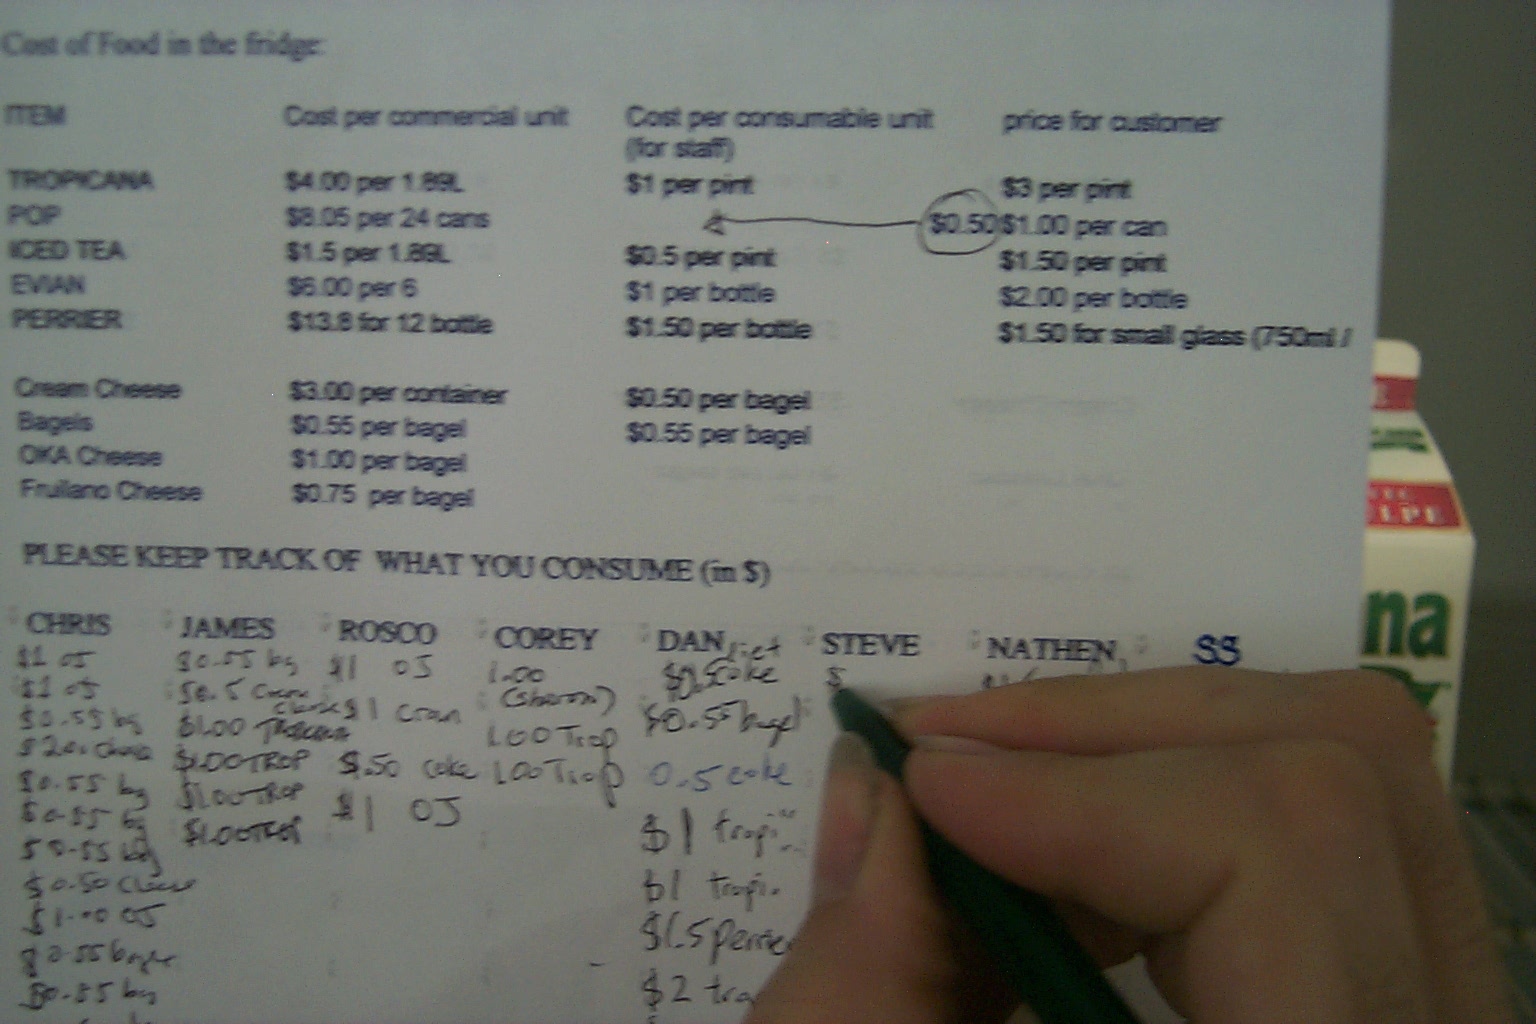 Cost of Food in the fridge:
ITEM Cost per commercial unit Cost per consumable unit (for staff) price for customer
TROPICANA $4.00 per 1.89L $1 per pint $3 per pint
POP $8.05 per 24 cans $0.50 $1.00 per can
ICED TEA $1.5 per 1.89L $0.5 per pint $1.50 per pint
EVIAN $6.00 per 6 $1 per bottle $2.00 per bottle
PERRIER $13.8 for 12 bottle $1.50 per bottle $1.50 for small glass (750ml /
Cream Cheese $3.00 per container $0.50 per bagel
Bagels $0.55 per bagel $0.55 per bagel
OKA Cheese $1.00 per bagel
Fruilano Cheese $0.75 per bagel
PLEASE KEEP TRACK OF WHAT YOU CONSUME (in $)
CHRIS JAMES ROSCO COREY DAN STEVE NATHEN SS
$1 OJ
$1 OJ
$0.55 bg
$0.55 bg
$0.55 bg
$0.55 bg
$0.50 cheese
$1.00 OJ
$0.55 bagle
$0.55 bg
$0.55 bg
$1.00 TROP
$1.00 TROP
$1.00 TROP
$1 OJ
$1 cran
$.50 coke
$1 OJ
1.00
(Sharon)
1.00 Trop
1.00 Trop
diet
$0.5 coke
$0.55 bagel
0.5 coke
$1 tropi
$1 tropi.
$1.5 perrie
$2 tro
$
na